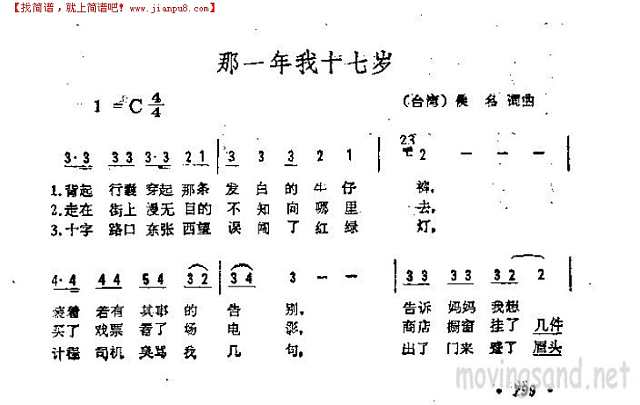 【找简谱，就上简谱吧! www.jianpu8.com】
那一年我十七岁
1=C 4/4
（台湾）佚 名 词曲
3·3 3·3 3·3 2 1 3 3 3 2 1 23 2 — —
1.背起 行囊 穿起 那条 发 白 的 牛 仔 裤，
2.走在 街上 漫无 目的 不 知 向 哪 里 去，
3.十字 路口 东张 西望 误 闯 了 红 绿 灯，
4·4 4 4 5 4 3 2 3 4 3 — — 3 3 3 3 3 2 2
装着 若有 其事 的 告 别， 告诉 妈妈 我想
买了 戏票 看了 场 电 影， 商店 橱窗 挂了 几件
计程 司机 臭骂 我 几 句， 出了 门来 蹙了 眉头
movingsand.net
· 299 ·